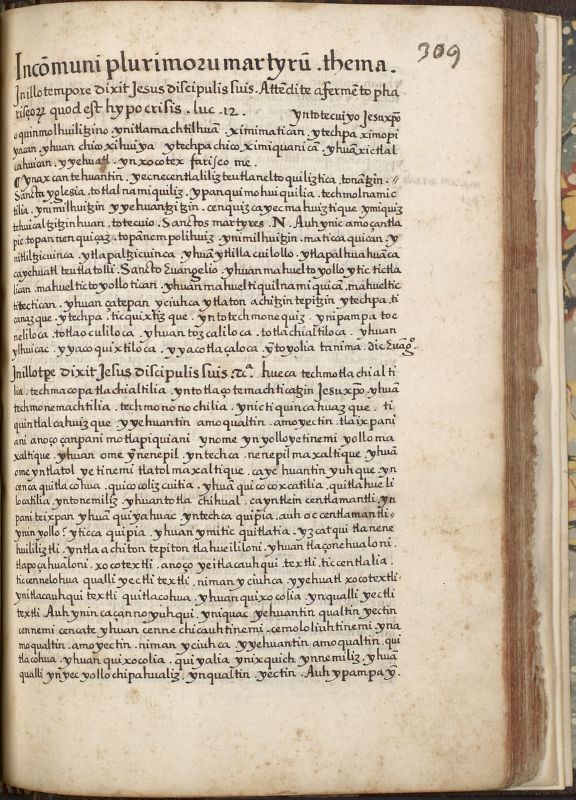 309
Incōmuni plurimoru martyrū . thema .
In illo tempore dixit Jesus discipulis suis . Attēdite a fermēto pha
riseoꝝ quod est hypocrisis . luc . 12 . yn totecuiyo Jesuxpō
oquinmolhuilitzino . ynitlamachtilhuā . ximimatican . ytechpa ximopi
yacan . yhuan chico xihuiya ytechpa chico ximiquanicā . yhuā xictlal
cahuican . yyehuatl . yn xocotex fariseome .
¶ yn axcan tehuantin . yecnecentlaliliz teutlaneltoquiliztica . tonātzin .
Sancta yglesia . totlalnamiquiliz . ypan quimohuiquilia . techmolnamic
tilia . ynimilhuitzin yyehuantzitzin . cenquizcayecmahuiztique ymiquiz
tehuicaltzitzinhuan . totecuio . Sanctos martyres . N . Auh ynic amo çantla
pic . topan nenquiçaz . topanēmpolihuiz . ynimilhuitzin . maticaquican . y
nitlilticuinca . ytlapaltzicuinca . yhuā ytlilla cuilollo . ytlapalhuahuāca
cayehuatl teutlatolli . Sancto Euangelio . yhuan mahuel toyollo ytic tictla
lican . mahuel tictoyolloticari . yhuan mahueltiquilnamiquicā . mahueltic
titectican . yhuan çatepan yciuhca ytlaton achitzin tepitzin ytechpa . ti
canazque . ytechpa . ticquixtizque . yntotechmonequiz . ynipampa toc
neliloca . totlaoculiloca . yhuan tozcaliloca . totlachialtiloca . yhuan
ylhuicac . yyacoquixtiloca . yyacotlaçaloca . ỹtoyolia tanima . dic Euāgo .
In illo tpe dixit Jesus discipulis suis . &cᵃ . hueca techmotlachialti
lia . techmacopatlachialtilia . yntotlaçotemachticatzin Jesuxpō . yhuā
techmonemachtilia . techmonononchilia . ynictiquincahuazque . ti
quintlalcahuizque yyehuantin amoqualtin . amoyectin . tlaixpani
ani anoço çanpani motlapiquiani ynome ynyolloyetinemi yolloma
xaltique . yhuan ome ỹnenepil . yntechca . nenepilmaxaltique . yhuā
ome yntlatol yetinemi tlatolmaxaltique . cayehuantin yuhque . yn
cenca quitlacohua . quicoliz cuitia . yhuā quicocoxcatilia . quitlahueli
locatilia . yntonemiliz . yhuan totlachihual . cayntlein centlamantli . yn
pani teixpan yhuā quiyahuac . yntechca quipia . auh oc centlamantli
ynin yollo? yticca quipia . yhuan ymitic quitlatia . yzcatqui tlanene
huililiztli . yntla achiton tepiton tlahuelilloni . yhuan tlaçonehualoni .
tlapoçahualoni . xocotextli . anoço yeitlacauhqui . textli . ticcentlalia .
ticcennelohua qualli yectli textli . niman yciuhca . yyehuatl xocotextli
ynitlacauhqui textli quitlacohua . yhuan quixocolia . ynqualli yectli
textli . Auh ynin caçannoyuhqui . yniquac yehuantin qualtin yectin
cennemi cencate yhuan cennechicauhtinemi . cemololiuhtinemi yna
moqualtin . amoyectin . niman yciuhca yyehuantin amoqualtin . qui
tlacohua . yhuan quixocolia . quiyalia ynixquich ynnemiliz . yhuā
qualli ynyecyollochipahualiz . ynqualtin . yectin . Auh ypampa ỹ .